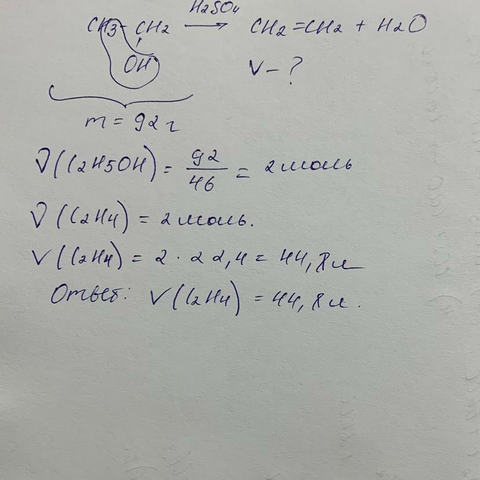 H2SO4
CH3-CH2 → CH2=CH2 + H2O
OH V-?
m = 92 г
ν(C2H5OH) = 92/46 = 2 моль
ν(C2H4) = 2 моль.
V(C2H4) = 2 · 22,4 = 44,8 л
Ответ: V(C2H4) = 44,8 л.